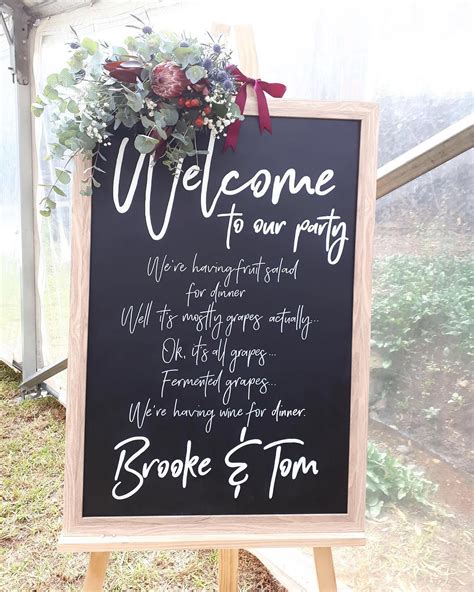 Welcome
to our party
We're having fruit salad
for dinner
Well it's mostly grapes actually...
Ok, it's all grapes...
Fermented grapes...
We're having wine for dinner.
Brooke & Tom